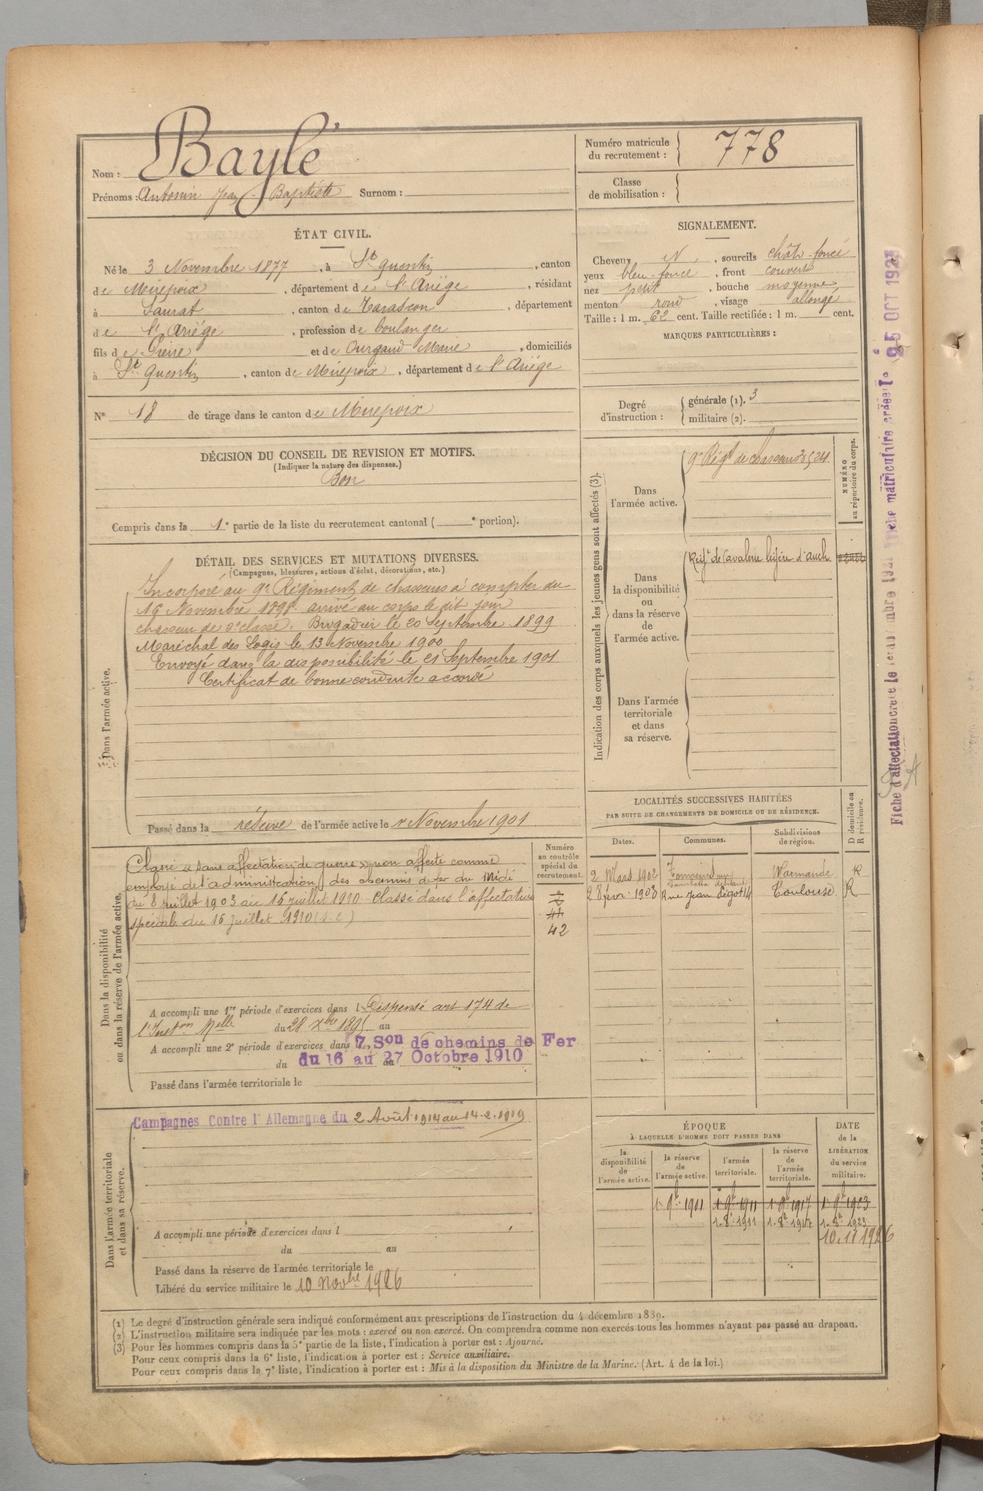 Nom : Baylé
Prénoms : Antonin Jean-Baptiste Surnom :
Numéro matricule du recrutement : 778
Classe de mobilisation :
ÉTAT CIVIL.
Né le 3 Novembre 1877, à St Quentin, canton
de Mirepoix, département de l'Ariège, résidant
à Saurat, canton de Tarascon, département
de l'Ariège, profession de boulanger
fils de Pierre et de Ourgaud Marie, domiciliés
à St Quentin, canton de Mirepoix, département de l'Ariège
N° 18 de tirage dans le canton de Mirepoix
SIGNALEMENT.
Cheveux N, sourcils chât-foncé
yeux bleu-foncé, front couvert
nez petit, bouche moyenne
menton rond, visage allongé
Taille : 1 m. 62 cent. Taille rectifiée : 1 m. cent.
MARQUES PARTICULIÈRES :
Degré d'instruction : générale (1). 3
militaire (2).
DÉCISION DU CONSEIL DE REVISION ET MOTIFS.
(Indiquer la nature des dispenses.)
Bon
Compris dans la 1e partie de la liste du recrutement cantonal ( e portion).
DÉTAIL DES SERVICES ET MUTATIONS DIVERSES.
(Campagnes, blessures, actions d'éclat, décorations, etc.)
Dans l'armée active.
Incorporé au 9e Régiment de chasseurs à compter du
16 Novembre 1898 arrivé au corps le dit jour
chasseur de 2e classe. Brigadier le 20 Septembre 1899
Maréchal des Logis le 13 Novembre 1900
Envoyé dans la disponibilité le 21 Septembre 1901
Certificat de bonne conduite accordé
Passé dans la réserve de l'armée active le 1 Novembre 1901
Indication des corps auxquels les jeunes gens sont affectés (3).
NUMÉRO au répertoire du corps.
Dans l'armée active.
9e Régt de chasseurs
Dans la disponibilité ou dans la réserve de l'armée active.
Régt de Cavalerie légère d'Auch
Dans l'armée territoriale et dans sa réserve.
LOCALITÉS SUCCESSIVES HABITÉES
PAR SUITE DE CHANGEMENTS DE DOMICILE OU DE RÉSIDENCE.
Dates. Communes. Subdivisions de région. D domicile ou R résidence.
2 Mars 1902 Tonneins Marmande R
28 févr. 1903 Rue Jean Bégot 14 Toulouse R
Dans la disponibilité ou dans la réserve de l'armée active.
Numéro au contrôle spécial du recrutement.
Classé « sans affectation de guerre » non affecté comme
employé de l'administration des chemins de fer du Midi
du 8 juillet 1903 au 15 juillet 1910. Classé dans l'affectation
spéciale du 15 juillet 1910 (S.C.)
42
A accompli une 1re période d'exercices dans l Dispensé art 174 de
l'Instron Melle du 28 Xbre 1895 au
A accompli une 2e période d'exercices dans 7 Son de chemins de Fer
du 16 au 27 Octobre 1910
Passé dans l'armée territoriale le
Dans l'armée territoriale et dans sa réserve.
Campagnes Contre l'Allemagne du 2 Août 1914 au 14-2-1919
A accompli une période d'exercices dans l
du au
Passé dans la réserve de l'armée territoriale le
Libéré du service militaire le 10 Novbre 1926
ÉPOQUE
À LAQUELLE L'HOMME DOIT PASSER DANS
la disponibilité de l'armée active. la réserve de l'armée active. l'armée territoriale. la réserve de l'armée territoriale. DATE de la LIBÉRATION du service militaire.
10.11 1926
(1) Le degré d'instruction générale sera indiqué conformément aux prescriptions de l'instruction du 4 décembre 1889.
(2) L'instruction militaire sera indiquée par les mots : exercé ou non exercé. On comprendra comme non exercés tous les hommes n'ayant pas passé au drapeau.
(3) Pour les hommes compris dans la 5e partie de la liste, l'indication à porter est : Ajourné.
Pour ceux compris dans la 6e liste, l'indication à porter est : Service auxiliaire.
Pour ceux compris dans la 7e liste, l'indication à porter est : Mis à la disposition du Ministre de la Marine. (Art. 4 de la loi.)